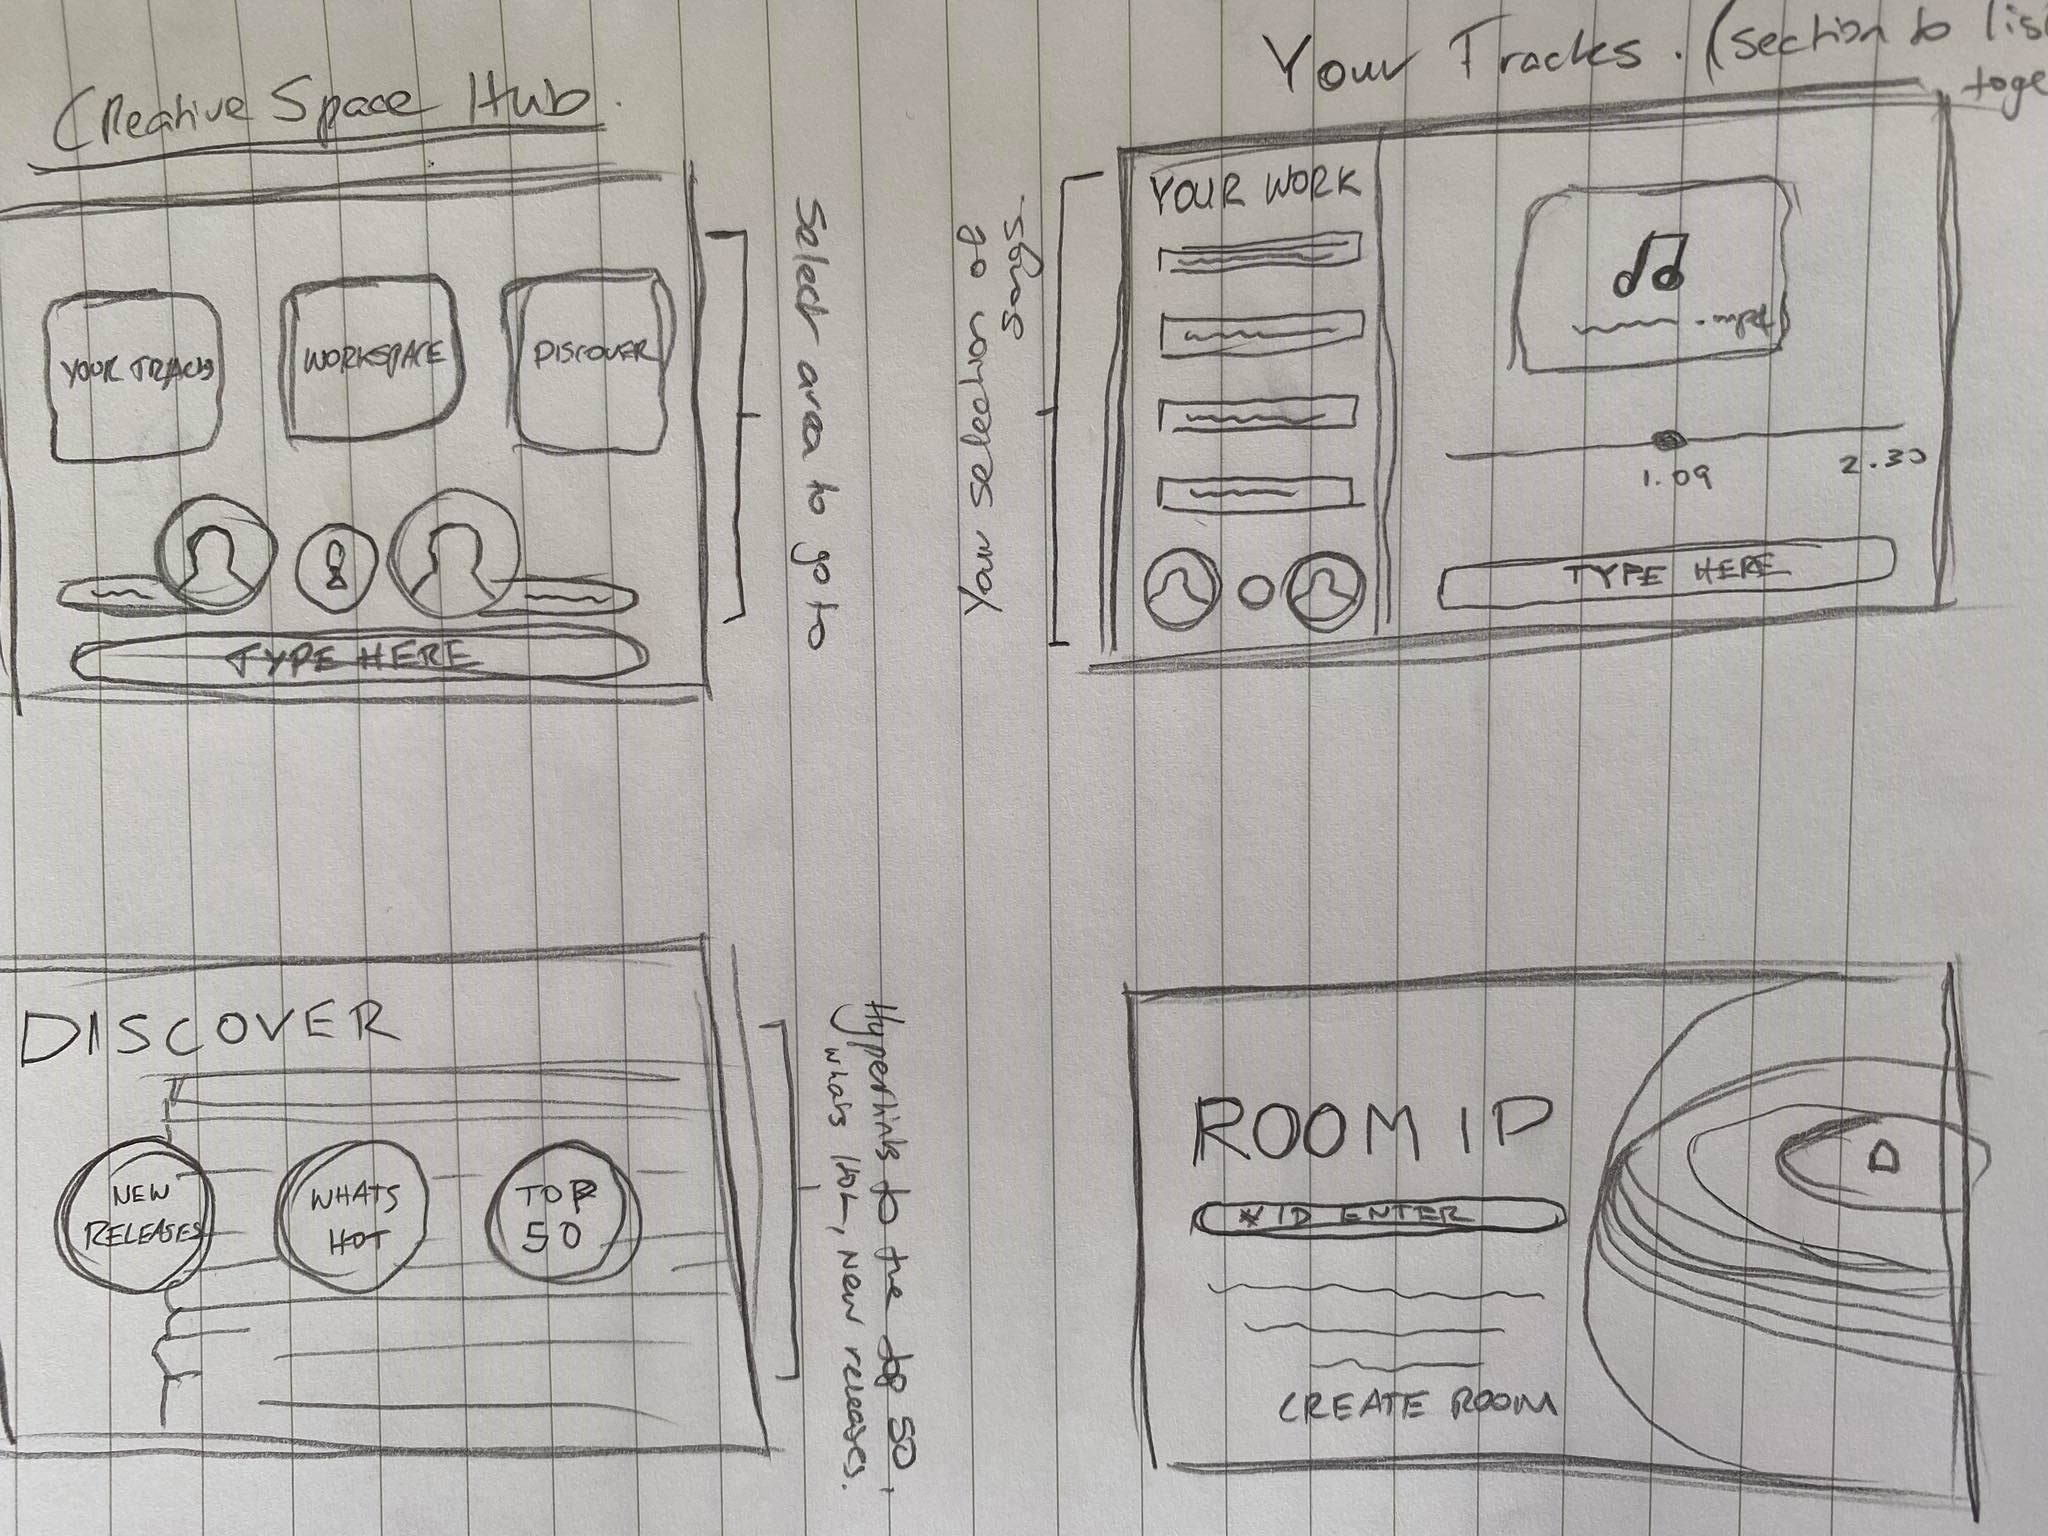 Creative Space Hub.
YOUR TRACKS
WORKSPACE
DISCOVER
TYPE HERE
Select area to go to
Your Tracks. (section to
toge
Your selection of
songs.
YOUR WORK
1.09
2.30
TYPE HERE
DISCOVER
NEW
RELEASES
WHATS
HOT
TOP
50
Hyperlinks to the top 50,
whats hot, new releases.
ROOM IP
ID ENTER
CREATE ROOM